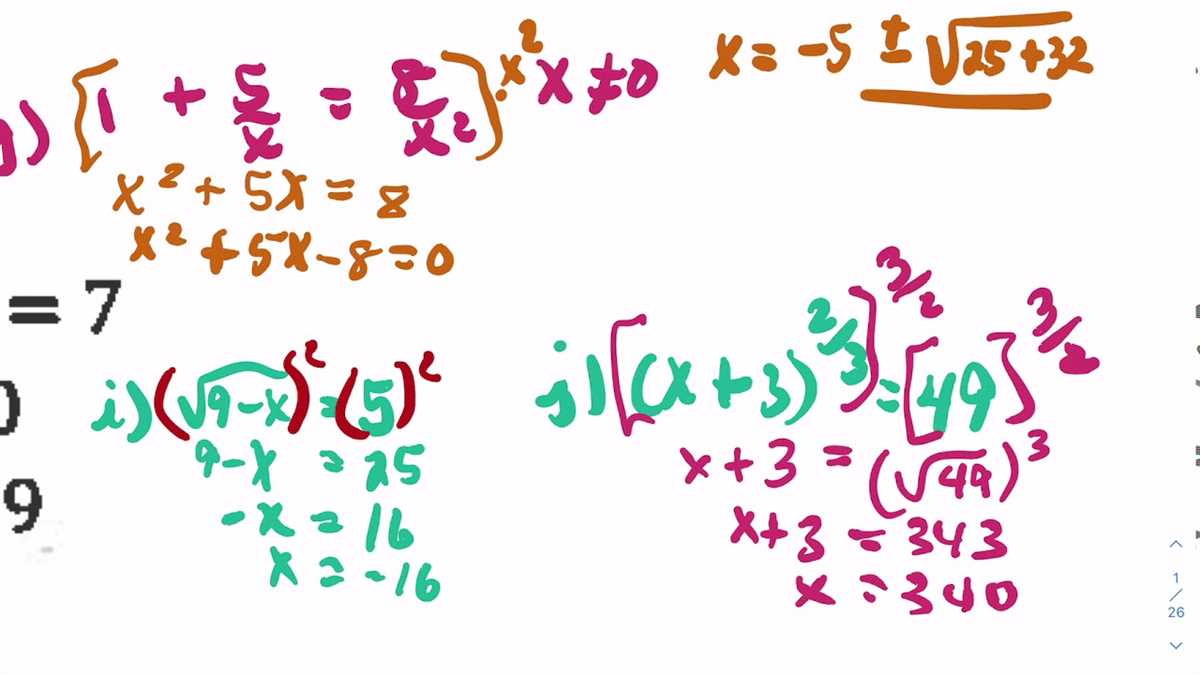 g) [1 + 5/x = 8/x²]·x² x ≠ 0
x = -5 ± √25+32
x² + 5x = 8
x² + 5x - 8 = 0
= 7
9
i) (√9-x)² = (5)²
9 - x = 25
-x = 16
x = -16
j) [(x+3)^2/3]^3/2 = [49]^3/2
x + 3 = (√49)³
x + 3 = 343
x = 340
1
/
26